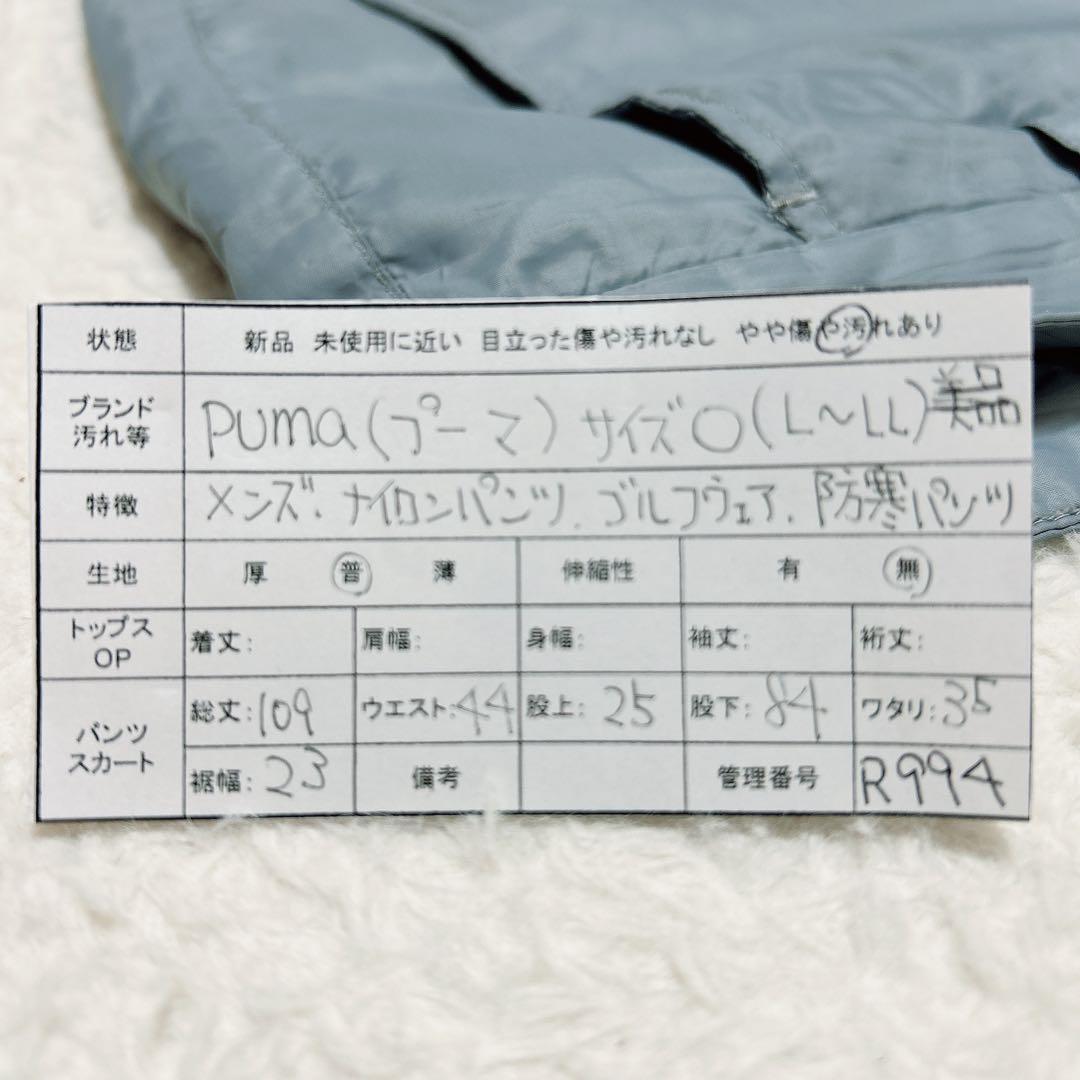 状態 新品 未使用に近い 目立った傷や汚れなし やや傷や汚れあり
ブランド
汚れ等
PUMA(プーマ)サイズO(L〜LL)美品
特徴 メンズ.ナイロンパンツ.ゴルフウェア.防寒パンツ
生地 厚 普 薄 伸縮性 有 無
トップス
OP
着丈: 肩幅: 身幅: 袖丈: 裄丈:
パンツ
スカート
総丈:109 ウエスト:44 股上:25 股下:84 ワタリ:35
裾幅:23 備考 管理番号 R994